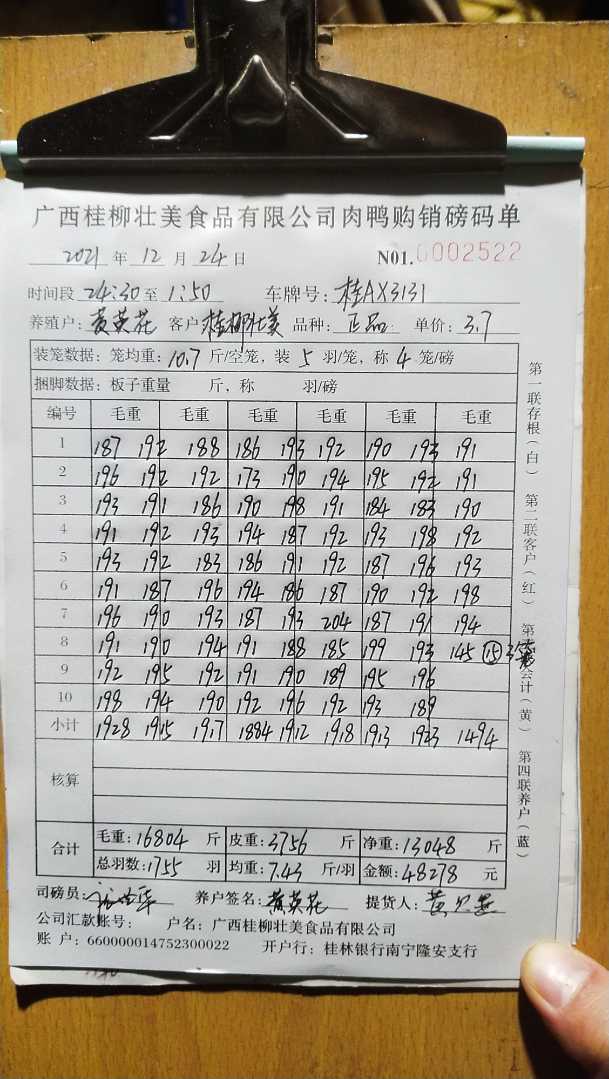 广西桂柳壮美食品有限公司肉鸭购销磅码单
2021 年 12 月 24 日 N01.0002522
时间段 24:30 至 1:50 车牌号: 桂AX3131
养殖户: 黄英花 客户 桂柳壮美 品种: 正品 单价: 3.7
装笼数据: 笼均重: 10.7 斤/空笼, 装 5 羽/笼, 称 4 笼/磅
捆脚数据: 板子重量 斤, 称 羽/磅
编号 毛重 毛重 毛重 毛重 毛重 毛重
1 187 192 188 186 193 192 190 193 191
2 196 192 192 173 190 194 195 192 191
3 193 191 186 190 198 191 184 183 190
4 191 192 193 194 187 192 193 198 192
5 193 192 183 186 191 192 187 196 193
6 191 187 196 194 186 187 190 192 198
7 196 190 193 187 193 204 187 191 194
8 191 190 194 191 188 185 199 193 145 15
9 192 195 192 191 190 189 195 196
10 198 194 190 192 196 192 193 189
小计 1928 1915 1917 1884 1912 1918 1913 1923 1494
核算
合计 毛重: 16804 斤 皮重: 3756 斤 净重: 13048 斤
总羽数: 1755 羽 均重: 7.43 斤/羽 金额: 48278 元
司磅员: 养户签名: 黄英花 提货人: 黄
公司汇款账号: 户名: 广西桂柳壮美食品有限公司
账 户: 660000014752300022 开户行: 桂林银行南宁隆安支行
第一联存根(白) 第二联客户(红) 第三联会计(黄) 第四联养户(蓝)